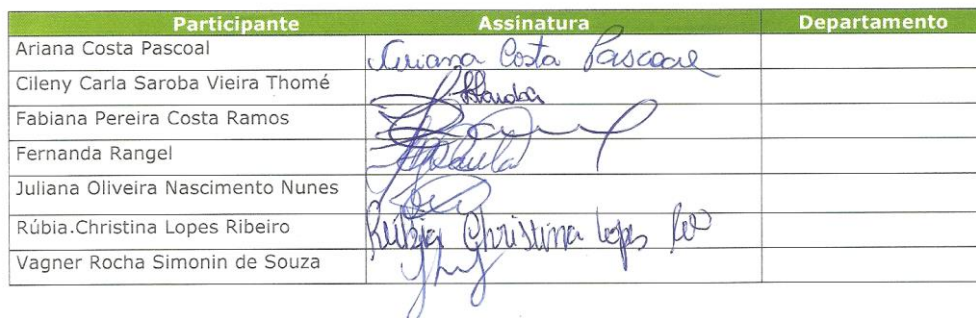 Participante Assinatura Departamento
Ariana Costa Pascoal Ariana Costa Pascoal
Cileny Carla Saroba Vieira Thomé
Fabiana Pereira Costa Ramos
Fernanda Rangel
Juliana Oliveira Nascimento Nunes
Rúbia.Christina Lopes Ribeiro Rúbia Christina Lopes
Vagner Rocha Simonin de Souza